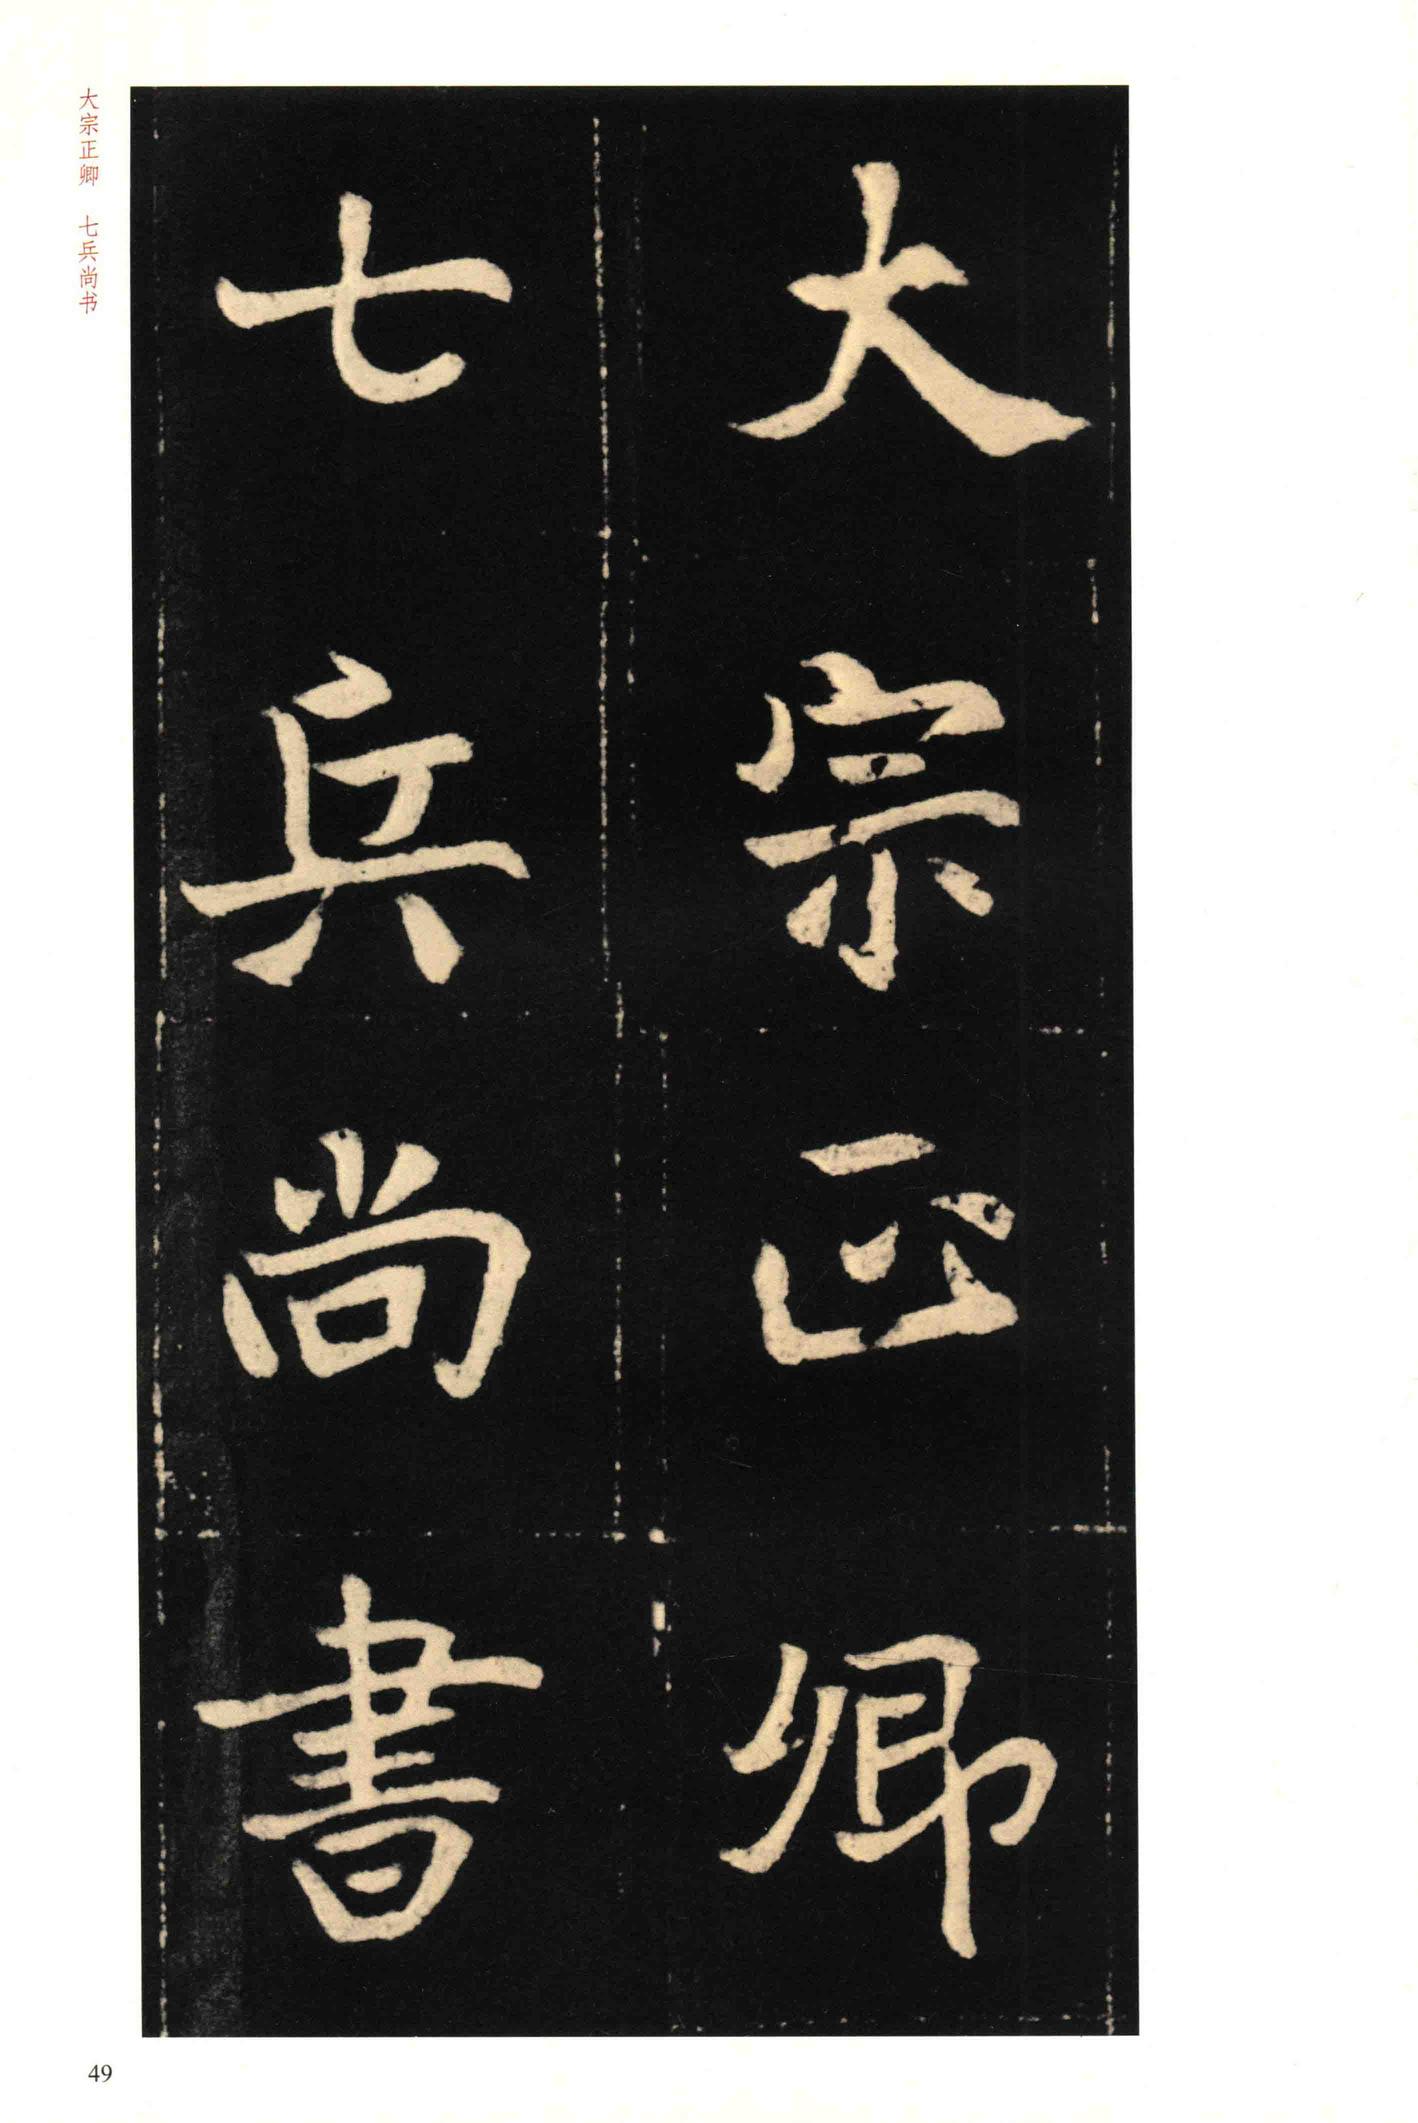 大宗正卿
七兵尚書
大宗正卿 七兵尚书
49